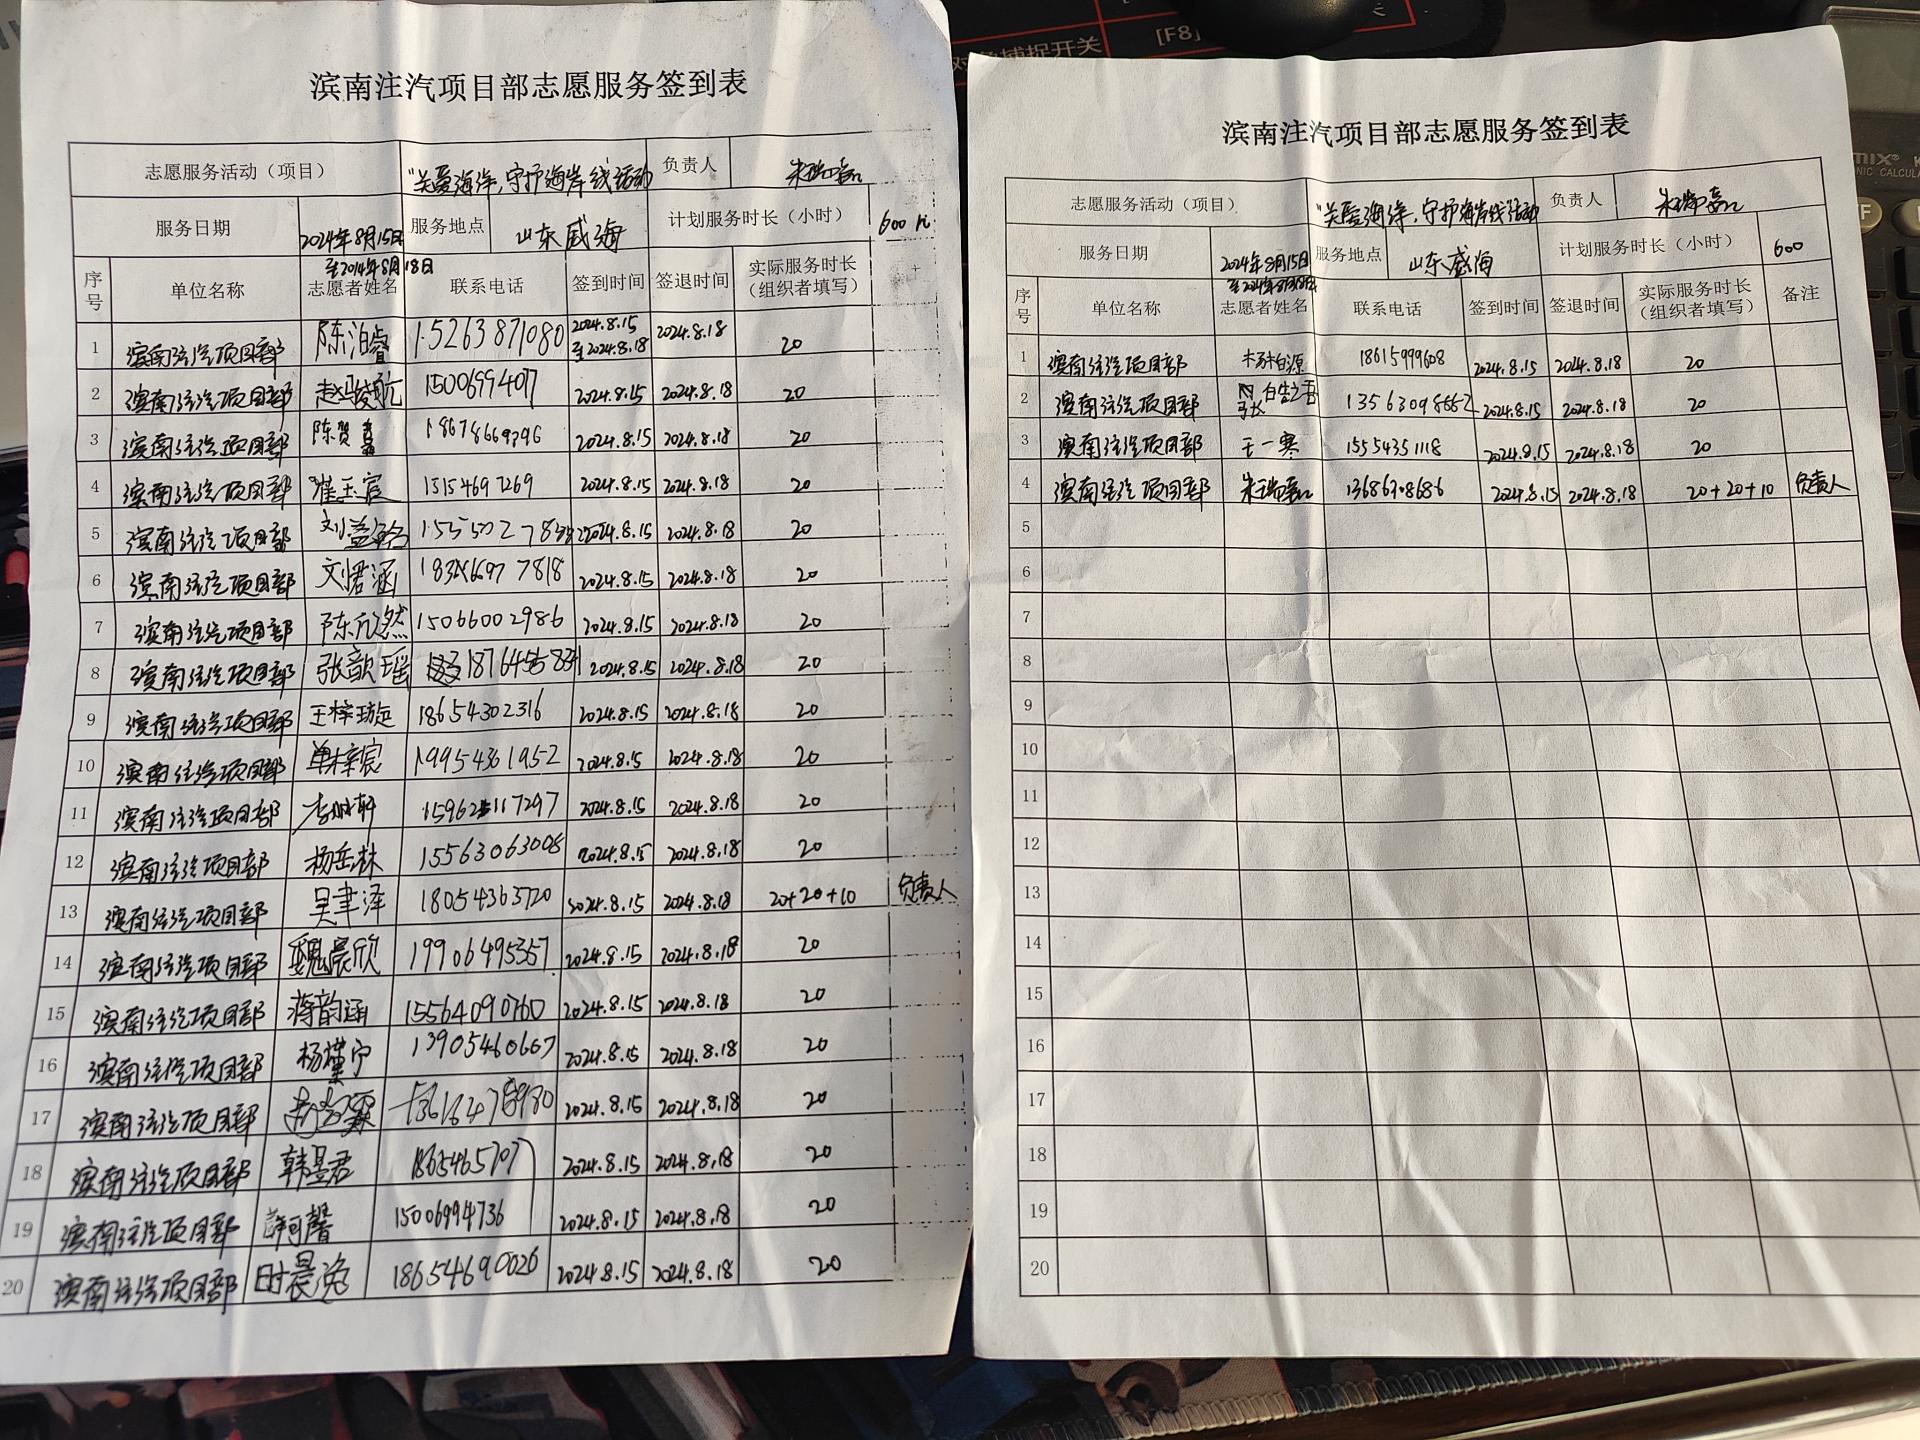 对象捕捉开关
[F8]
滨南注汽项目部志愿服务签到表
志愿服务活动（项目） "关爱海洋,守护海岸线活动 负责人 朱瑞嘉
服务日期 2024年8月15日 至2014年8月18日 服务地点 山东威海 计划服务时长（小时） 600
序号 单位名称 志愿者姓名 联系电话 签到时间 签退时间 实际服务时长（组织者填写）
1 滨南注汽项目部 陈泊睿 15263871080 2024.8.15 至2024.8.18 2024.8.18 20
2 滨南注汽项目部 赵骏航 15006994077 2024.8.15 2024.8.18 20
3 滨南注汽项目部 陈贺鑫 2024.8.15 2024.8.18 20
4 滨南注汽项目部 崔玉宸 13154697269 2024.8.15 2024.8.18 20
5 滨南注汽项目部 刘益铭 2024.8.15 2024.8.18 20
6 滨南注汽项目部 文熠涵 2024.8.15 2024.8.18 20
7 滨南注汽项目部 陈欣然 15066002986 2024.8.15 2024.8.18 20
8 滨南注汽项目部 张歆瑶 2024.8.15 2024.8.18 20
9 滨南注汽项目部 王梓璇 18654302316 2024.8.15 2024.8.18 20
10 滨南注汽项目部 单梓宸 19954361952 2024.8.15 2024.8.18 20
11 滨南注汽项目部 2024.8.15 2024.8.18 20
12 滨南注汽项目部 杨岳林 15563063008 2024.8.15 2024.8.18 20
13 滨南注汽项目部 吴聿泽 18054363720 2024.8.15 2024.8.18 20+20+10 负责人
14 滨南注汽项目部 魏晨欣 19906495357 2024.8.15 2024.8.18 20
15 滨南注汽项目部 蒋韵涵 15564090760 2024.8.15 2024.8.18 20
16 滨南注汽项目部 杨瑾宁 13905460667 2024.8.15 2024.8.18 20
17 滨南注汽项目部 2024.8.15 2024.8.18 20
18 滨南注汽项目部 韩昱君 2024.8.15 2024.8.18 20
19 滨南注汽项目部 薛珂馨 15006994736 2024.8.15 2024.8.18 20
20 滨南注汽项目部 时晨逸 18654690026 2024.8.15 2024.8.18 20
滨南注汽项目部志愿服务签到表
志愿服务活动（项目） "关爱海洋,守护海岸线活动 负责人 朱瑞嘉
服务日期 2024年8月15日 至2024年8月18日 服务地点 山东威海 计划服务时长（小时） 600
序号 单位名称 志愿者姓名 联系电话 签到时间 签退时间 实际服务时长（组织者填写） 备注
1 滨南注汽项目部 杨柏源 18615999608 2024.8.15 2024.8.18 20
2 滨南注汽项目部 13563098662 2024.8.15 2024.8.18 20
3 滨南注汽项目部 王一寒 15554351118 2024.8.15 2024.8.18 20
4 滨南注汽项目部 朱瑞嘉 2024.8.15 2024.8.18 20+20+10 负责人
5
6
7
8
9
10
11
12
13
14
15
16
17
18
19
20